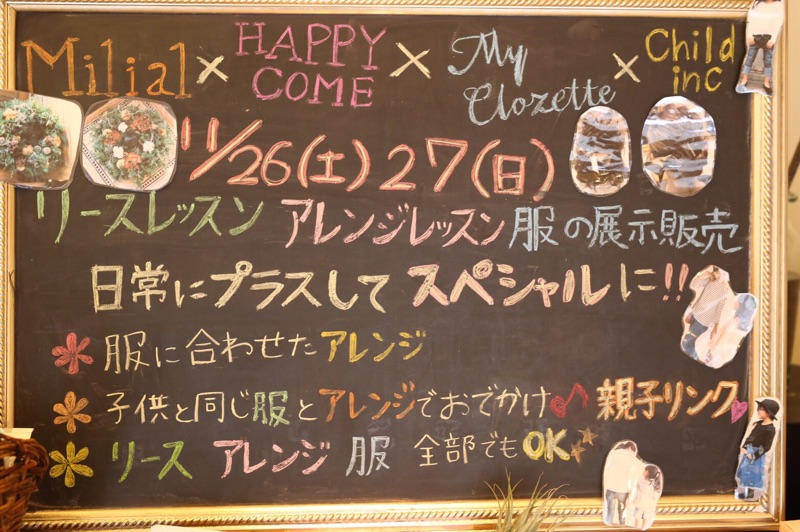 Milial × HAPPY COME × My Clozette × Child inc
11/26(土) 27(日)
リースレッスン アレンジレッスン 服の展示販売
日常にプラスして スペシャルに!!
服に合わせたアレンジ
子供と同じ服とアレンジでおでかけ♪ 親子リンク
リース アレンジ 服 全部でもOK